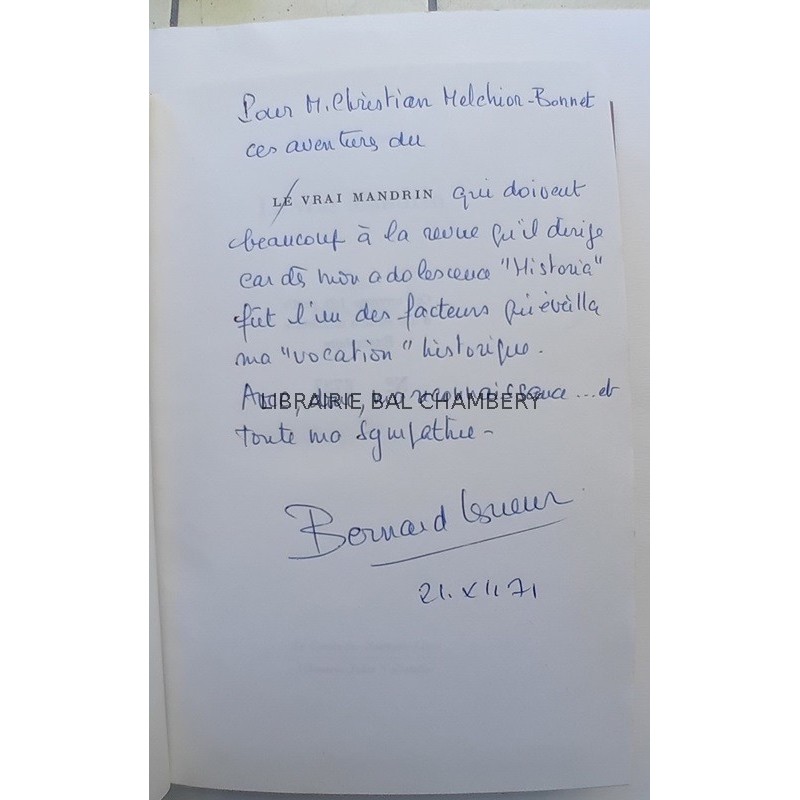 Pour M. Christian Melchior-Bonnet
ces aventures du
LE VRAI MANDRIN qui doivent
beaucoup à la revue qu'il dirige
car dès mon adolescence "Historia"
fût l'un des facteurs qui éveilla
ma "vocation" historique.
Avec, donc, ma reconnaissance ... et
LIBRAIRIE BAL CHAMBERY
toute ma sympathie -
Bernard Lesueur
21. XII. 71